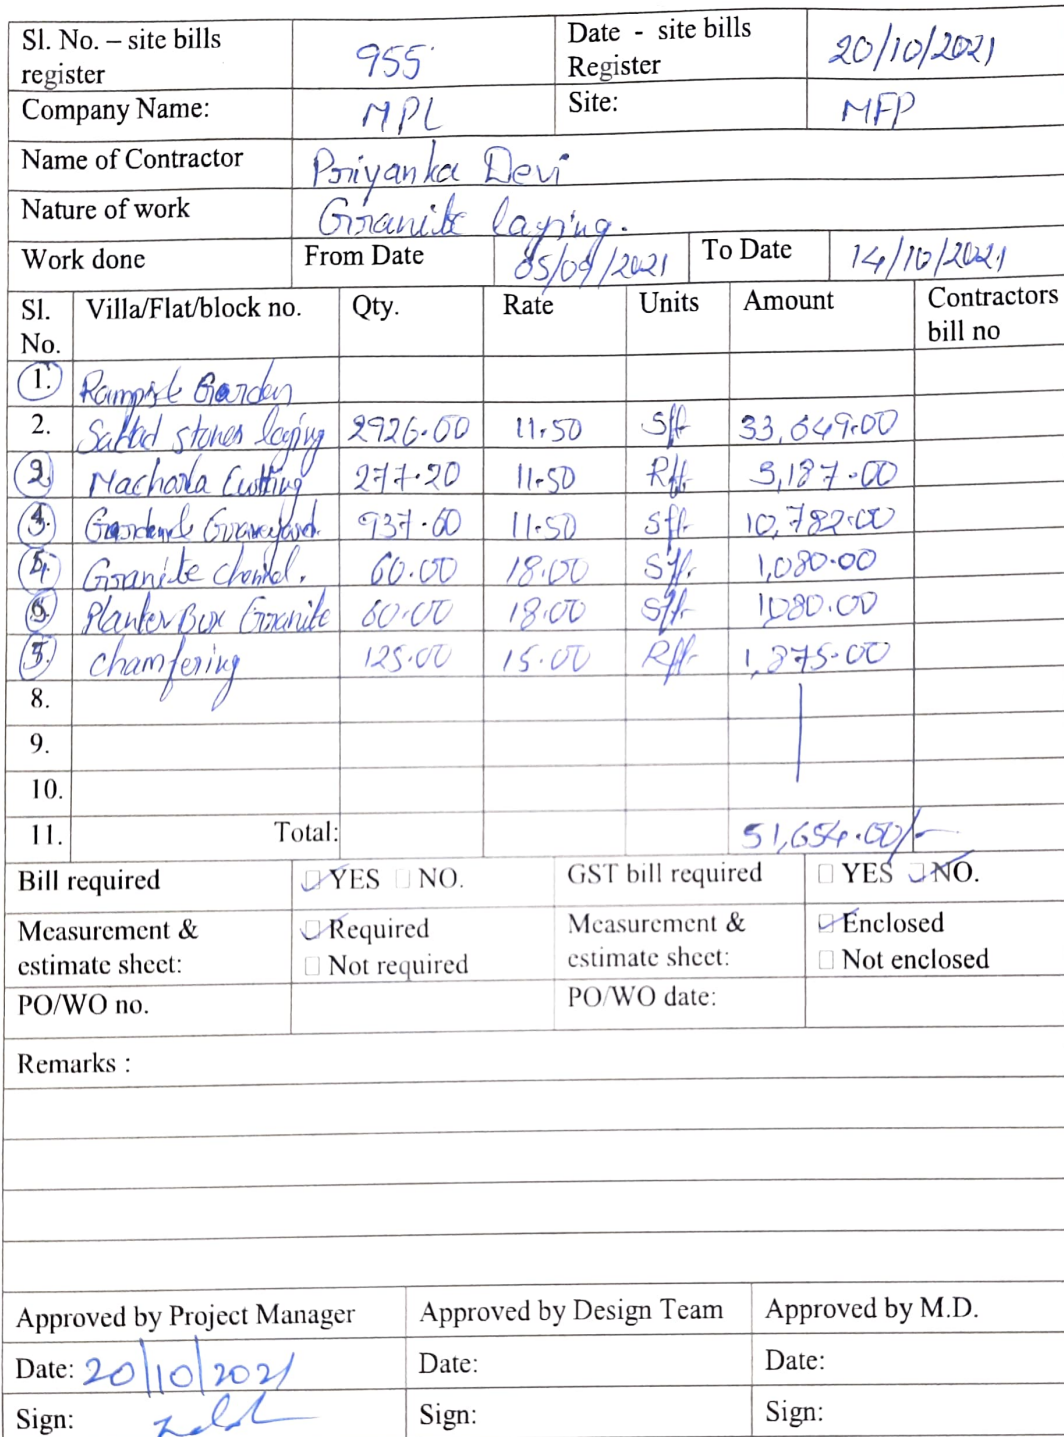 Sl. No. – site bills register 955 Date - site bills Register 20/10/2021
Company Name: MPL Site: MFP
Name of Contractor Priyanka Devi
Nature of work Granite laying.
Work done From Date 05/09/2021 To Date 14/10/2021
Sl. No. Villa/Flat/block no. Qty. Rate Units Amount Contractors bill no
1. Garden
2. stones laying 2926.00 11.50 Sft 33,649.00
Cutting 277.20 11.50 Rft 3,187.00
937.60 11.50 Sft 10,782.00
Granite 60.00 18.00 Sft. 1,080.00
Planter Box Granite 60.00 18.00 Sft 1080.00
chamfering 125.00 15.00 Rft 1,875.00
8.
9.
10.
11. Total: 51,654.00/-
Bill required YES NO. GST bill required YES NO.
Measurement & estimate sheet: Required Not required Measurement & estimate sheet: Enclosed Not enclosed
PO/WO no. PO/WO date:
Remarks :
Approved by Project Manager Approved by Design Team Approved by M.D.
Date: 20/10/2021 Date: Date:
Sign: Sign: Sign: